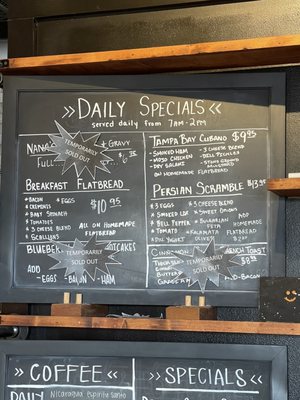 »DAILY SPECIALS«
served daily from 7AM-2PM
NANA
& GRAVY
FULL
TEMPORARILY
SOLD OUT
BREAKFAST FLATBREAD
•BACON •EGGS
•CREMINIS
•BABY SPINACH
•TOMATOES
•3 CHEESE BLEND
•SCALLIONS
$10.95
ALL ON HOMEMADE
FLATBREAD
BLUEBE
TCAKES
TEMPORARILY
SOLD OUT
ADD
-EGGS -BACON -HAM
TAMPA BAY CUBANO $9.95
•SMOKED HAM •3 CHEESE BLEND
•MOJO CHICKEN •DILL PICKLES
•DRY SALAMI •STONE GROUND
MUSTARD
ON HOMEMADE FLATBREAD
PERSIAN SCRAMBLE $13.95
•3 EGGS •3 CHEESE BLEND
•SMOKED LOX •SWEET ONIONS
•BELL PEPPER •BULGARIAN
FETA
•TOMATO •KALAMATA
OLIVES
ADD
HOMEMADE
FLATBREAD
CINNAMON
TOAST
TEMPORARILY
SOLD OUT
ADD-BACON
TEMPORARILY
SOLD OUT
»COFFEE«
»SPECIALS«
DAILY